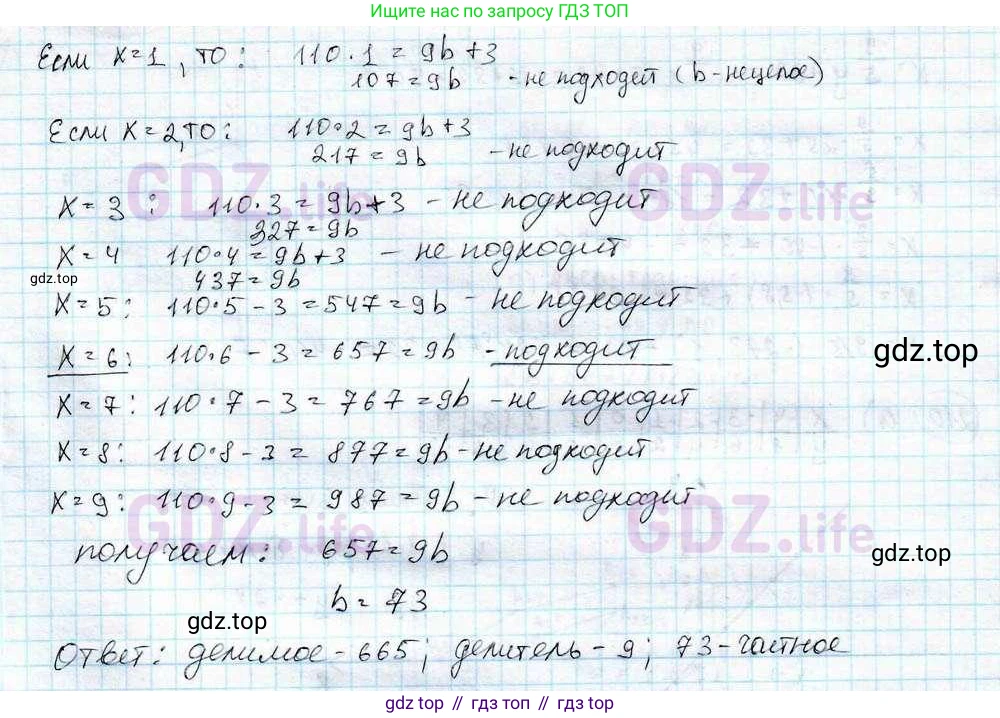 Ищите нас по запросу ГДЗ ТОП
Если x=1, то: 110·1 = 9b+3
107=9b - не подходит (b-нецелое)
Если x=2, то: 110·2 = 9b+3
217=9b - не подходит
GDZ.life GDZ.life
x=3: 110·3 = 9b+3 - не подходит
327=9b
x=4 110·4=9b+3 - не подходит
gdz.top 437=9b
x=5: 110·5-3=547=9b - не подходит
x=6: 110·6-3=657=9b - подходит
gdz.top
x=7: 110·7-3=767=9b - не подходит
x=8: 110·8-3=877=9b - не подходит
x=9: 110·9-3=987=9b - не подходит
GDZ.life GDZ.life
получаем: 657=9b
gdz.top
b=73
gdz.top
Ответ: делимое-665; делитель-9; 73-частное
gdz top // гдз топ // gdz.top // гдз.топ